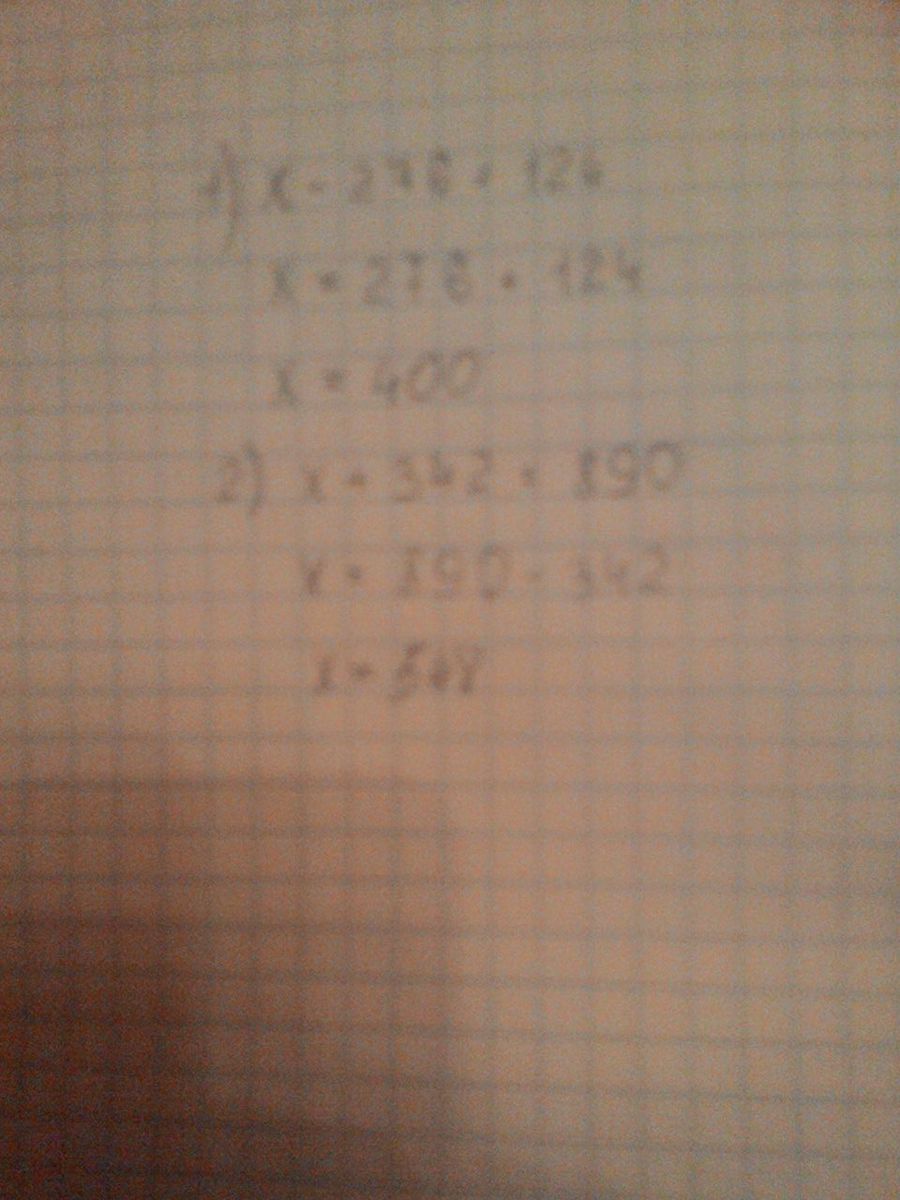 1) x - 276 = 124
x = 276 + 124
x = 400
2) x + 342 = 890
x = 890 - 342
x = 548